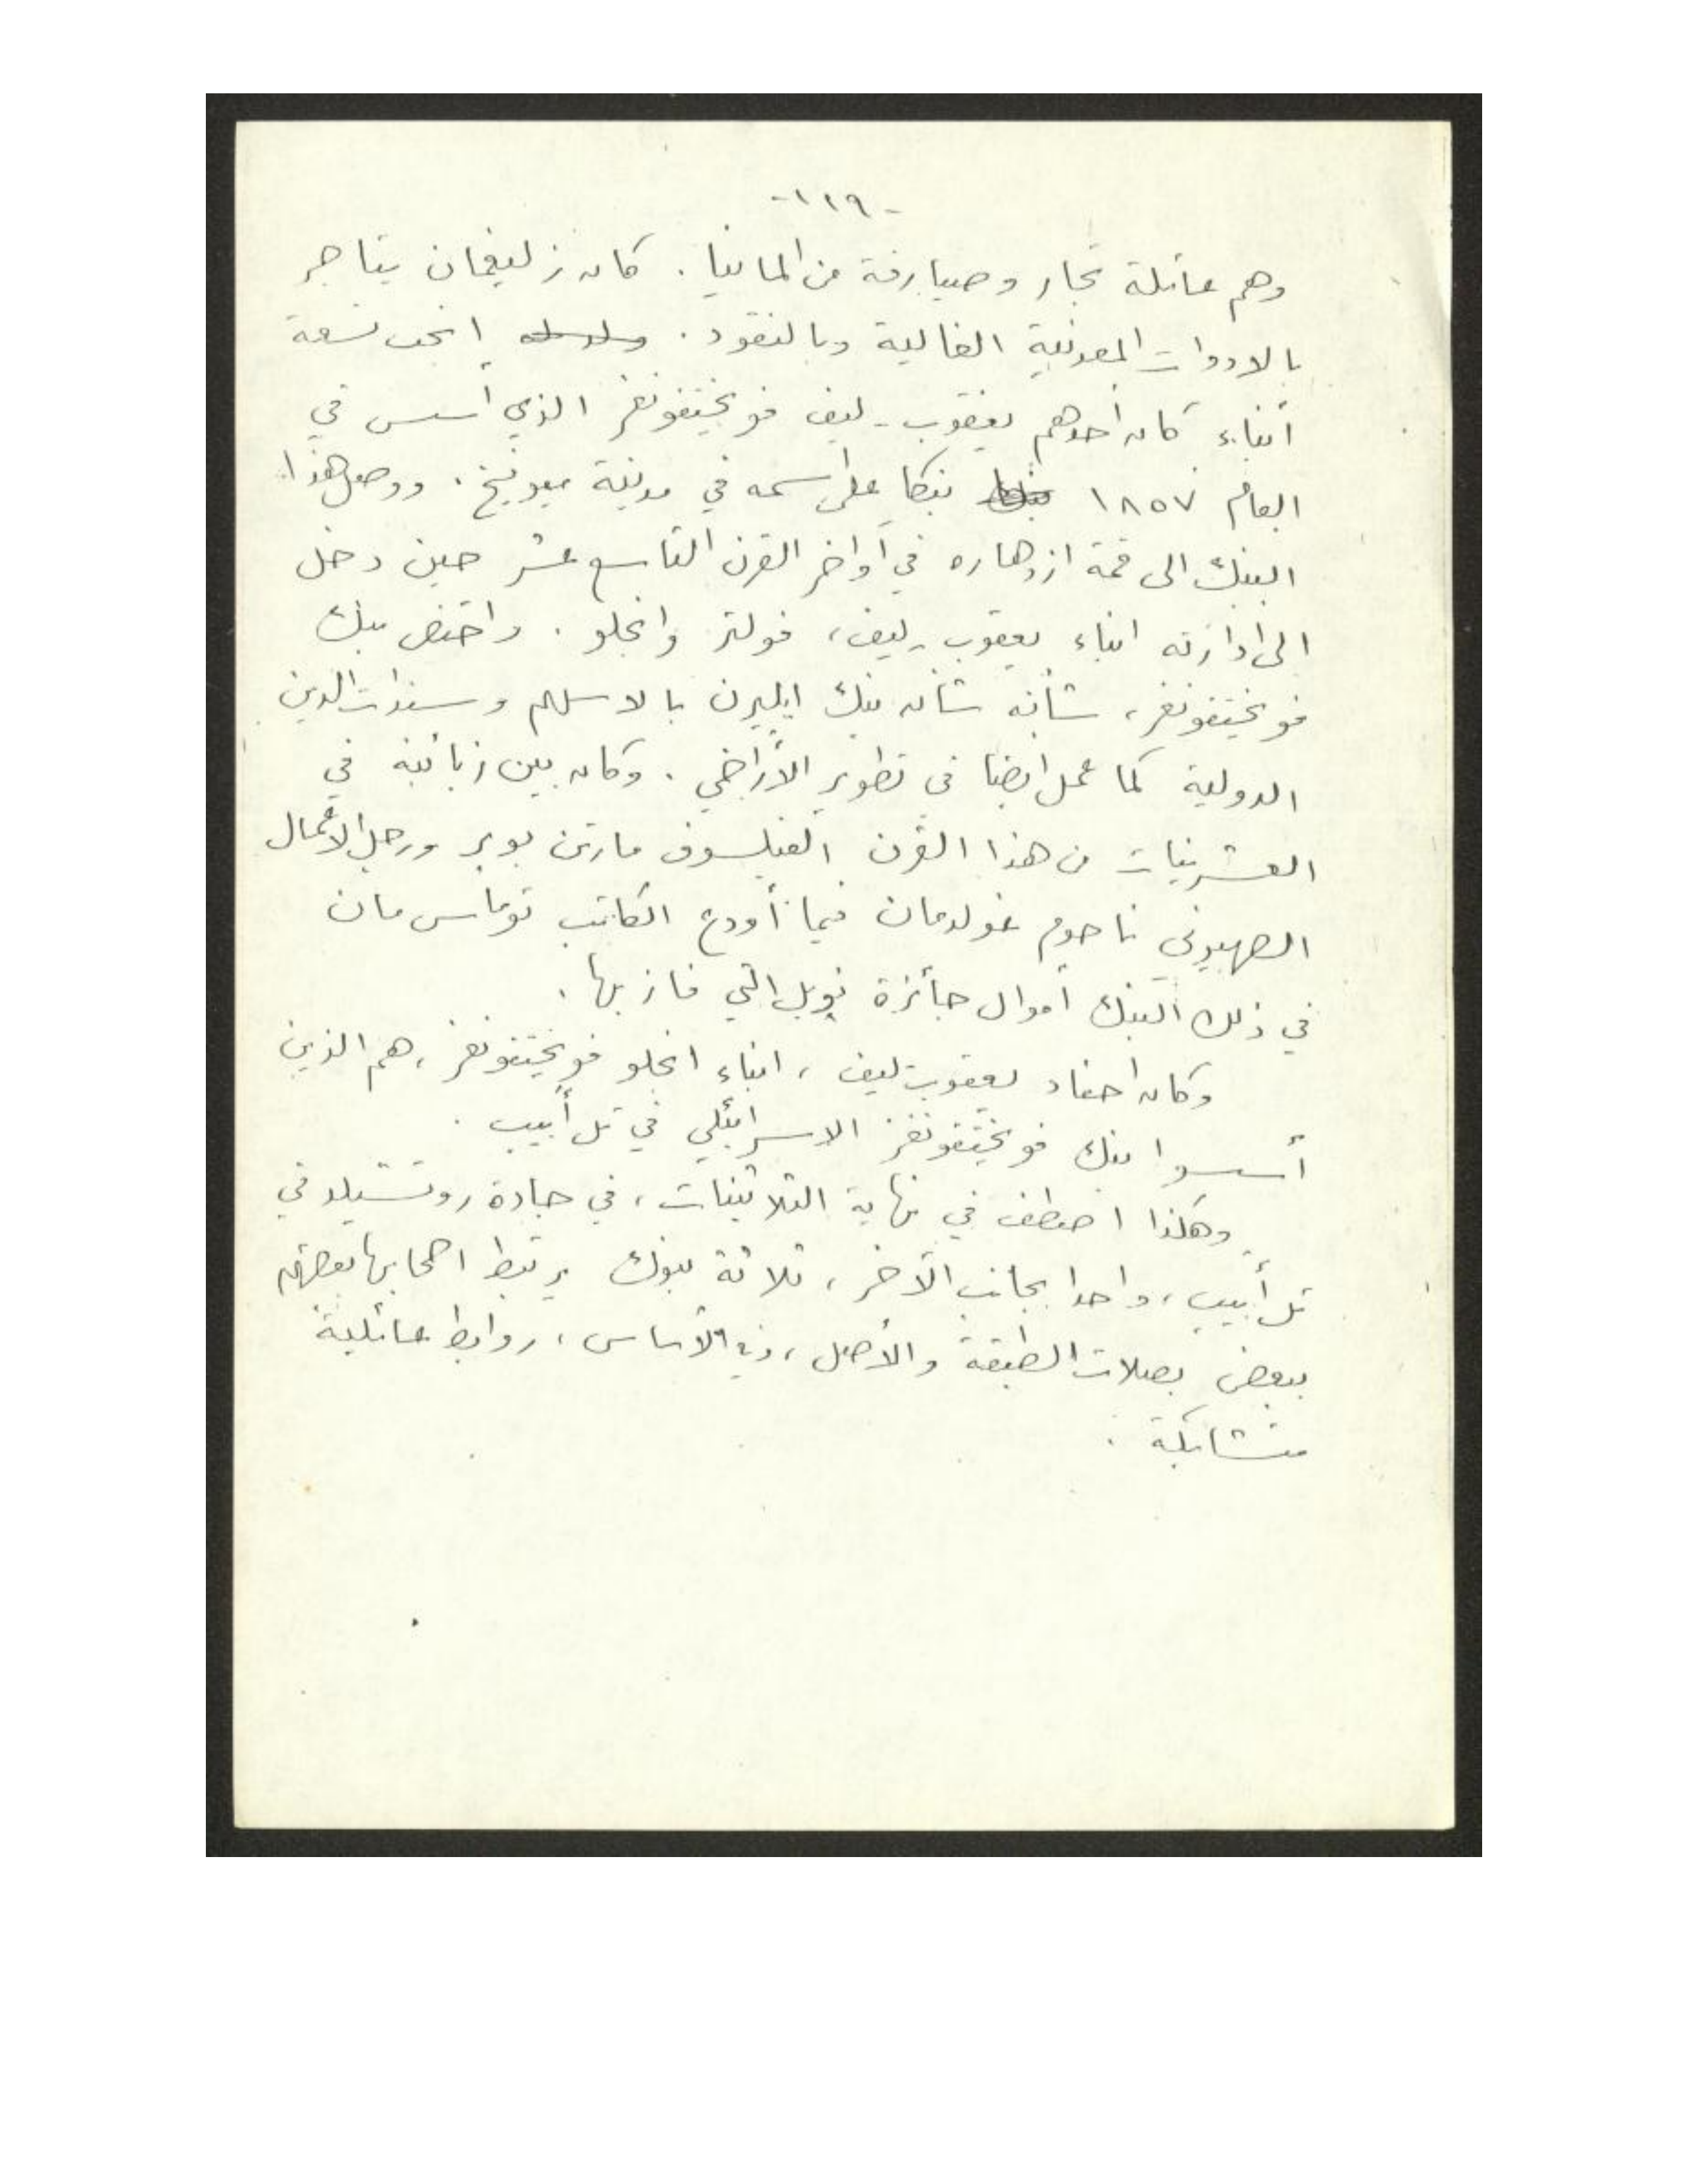 -١١٩-
وهم عائلة تجار وصيارفة من المانيا . كان زليغمان يتاجر
بالادوات المعدنية الغالية وبالنقود . انجب تسعة
أبناء كان أحدهم يعقوب - ليف فويختفونغر الذي أسس في
العام ١٨٥٧ بنكا على اسمه في مدينة ميونيخ . ووصل هذا
البنك الى قمة ازدهاره في أواخر القرن التاسع عشر حين دخل
الى ادارته ابناء يعقوب - ليف ، فولتر وانجلو . واختص بنك
فويختفونغر ، شأنه شأن بنك ايليرن بالاسهم وسندات الدين
الدولية كما عمل ايضا في تطوير الأراضي . وكان بين زبائنه في
العشرينات من هذا القرن الفيلسوف مارتن بوبر ورجل الاعمال
الصهيوني ناحوم غولدمان فيما أودع الكاتب توماس مان
في ذلك البنك أموال جائزة نوبل التي فاز بها .
وكان احفاد يعقوب - ليف ، ابناء انجلو فويختفونغر ، هم الذين
أسسوا بنك فويختفونغر الاسرائيلي في تل أبيب .
وهكذا اصطف في نهاية الثلاثينات ، في جادة روتشيلد في
تل أبيب ، واحدا بجانب الآخر ، ثلاثة بنوك يرتبط اصحابها بعضهم
ببعض بصلات الطبقة والأصل ، وفي الأساس ، روابط عائلية
متشابكة .